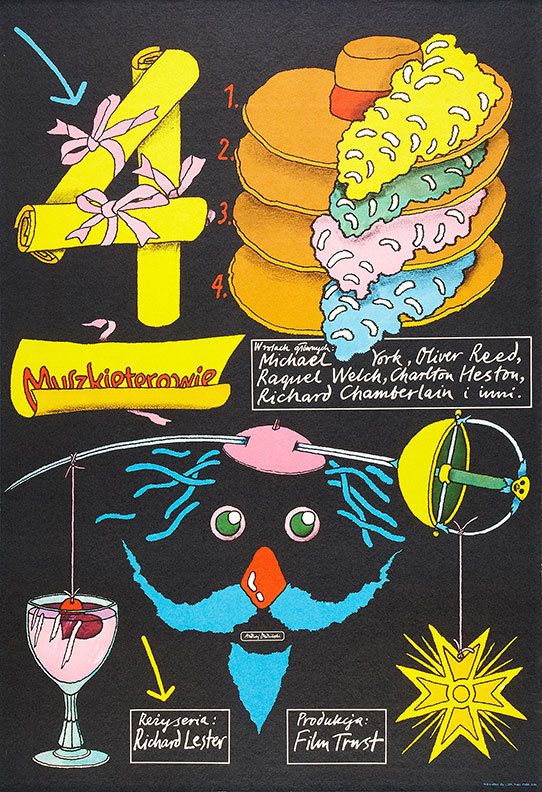 4
1.
2.
3.
4.
Muszkieterowie
W rolach głównych:
Michael York, Oliver Reed,
Raquel Welch, Charlton Heston,
Richard Chamberlain i inni.
Reżyseria:
Richard Lester
Produkcja:
Film Trust